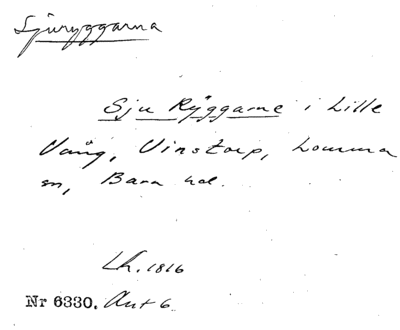 Sjuryggarna
Sju Ryggarne i Lille
Vång, Vinstorp, Lomma
sn, Bara hd.
Lh. 1816
Nr 6330. Akt 6